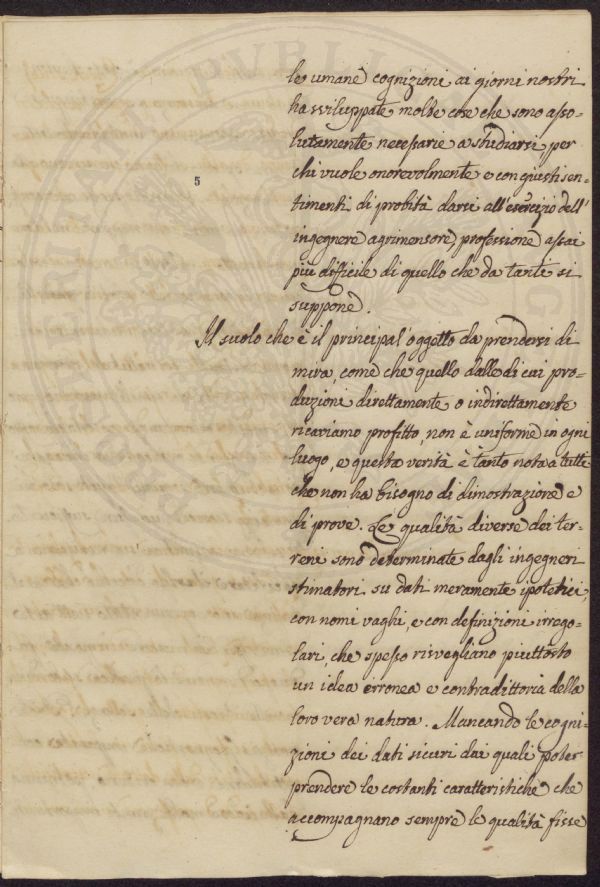 le umane cognizioni ai giorni nostri
ha sviluppate molte cose che sono asso=
lutamente necessarie a studiarsi per
chi vuole onorevolmente e con giusti sen=
5
timenti di probità darsi all'esercizio dell'
ingegnere agrimensore, professione assai
più difficile di quello che da tanti si
suppone.
Il suolo che è il principal'oggetto da prendersi di
mira, come che quello dalle di cui pro=
duzioni direttamente o indirettamente
ricaviamo profitto, non è uniforme in ogni
luogo, e questa verità è tanto nota a tutti
che non ha bisogno di dimostrazione e
di prove. Le qualità diverse dei ter=
reni sono determinate dagli ingegneri
stimatori su dati meramente ipotetici,
con nomi vaghi, e con definizioni irrego=
lari, che spesso risvegliano piuttosto
un idea erronea e contradittoria della
loro vera natura. Mancando le cogni=
zioni dei dati sicuri dai quali poter
prendere le costanti caratteristiche che
accompagnano sempre le qualità fisse